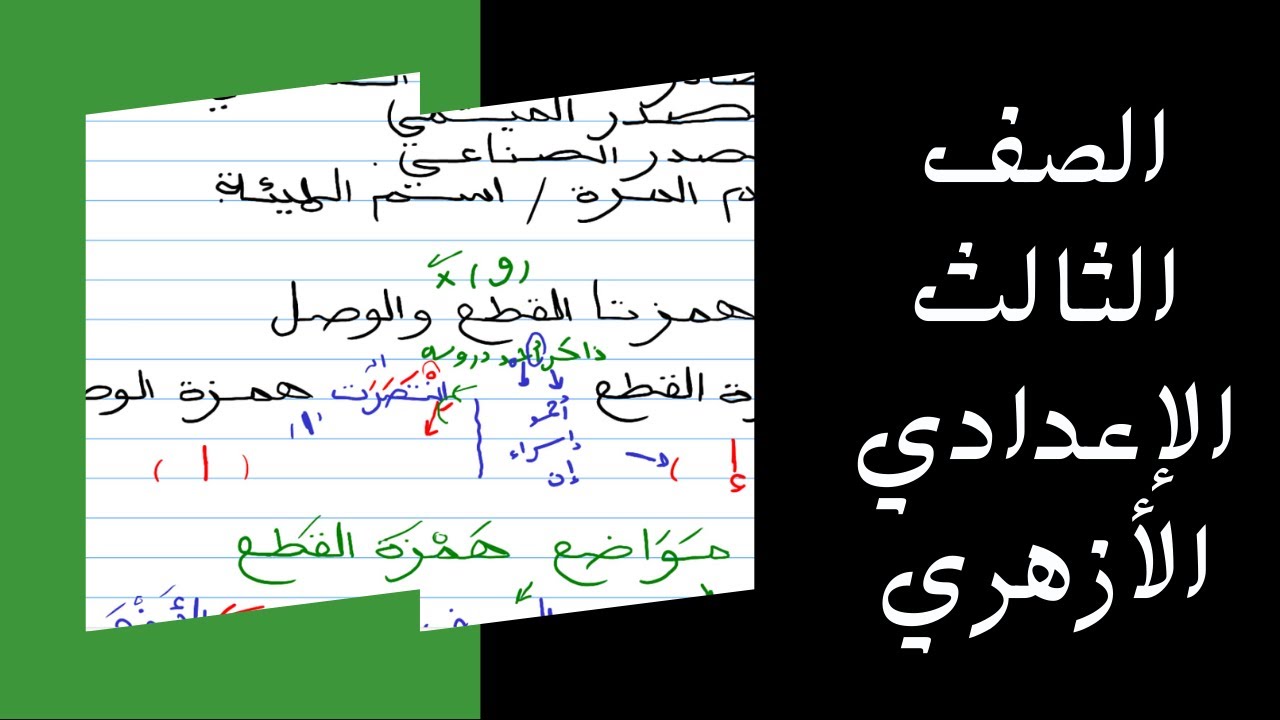 الصف
الثالث
الإعدادي
الأزهري
صدر الميمي
صدر الصناعي
م المرة / اسم الهيئة
(و) x
همزتا القطع والوصل
ذاكر أحمد دروسه
ة القطع
انتصرت
همزة الوص
أحمد
إسراء
إن
إ )
( ا )
مَوَاضع هَمْزَة القَطَع